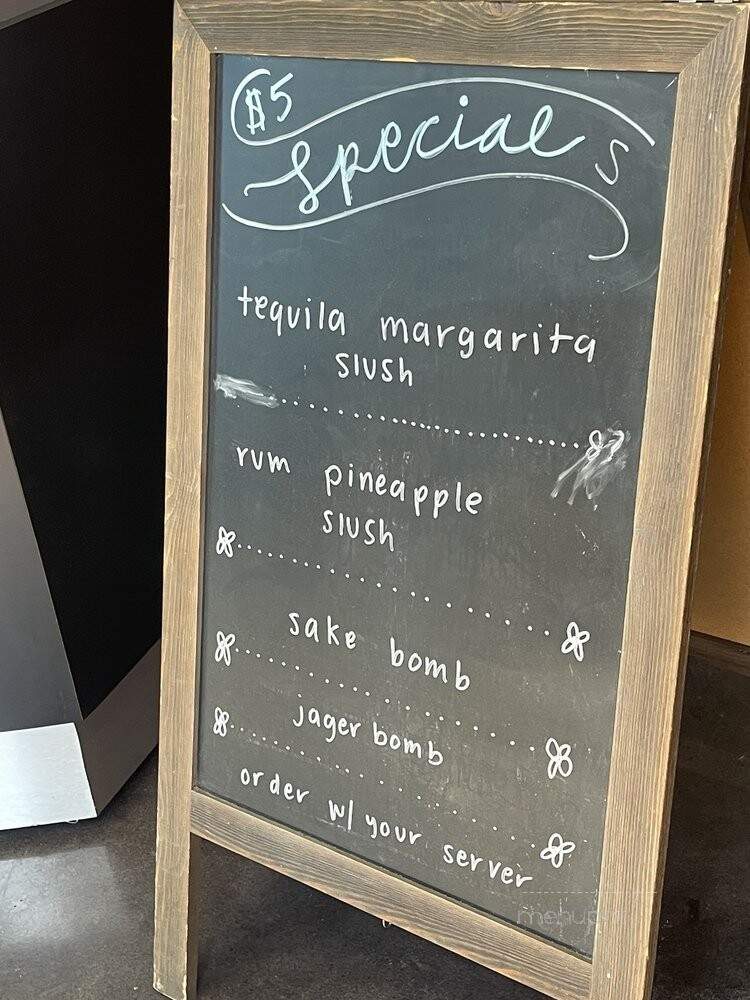 $5
specials
tequila margarita
slush
rum pineapple
slush
sake bomb
jager bomb
order w/ your server